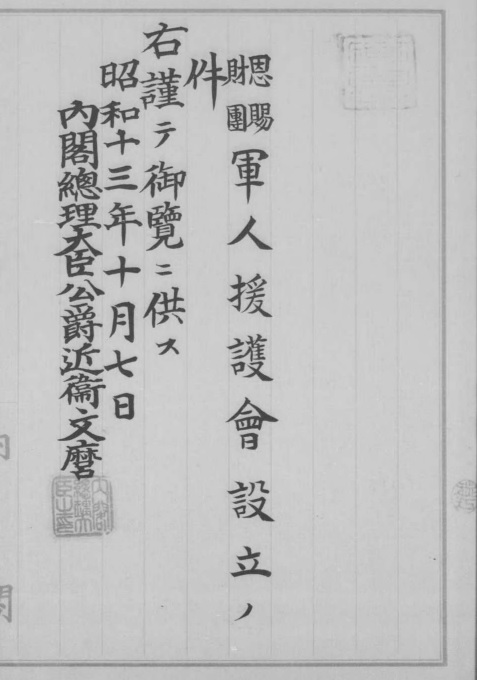 恩賜
財團
軍人援護會設立ノ
件
右謹テ御覽ニ供ス
昭和十三年十月七日
內閣總理大臣公爵近衞文麿